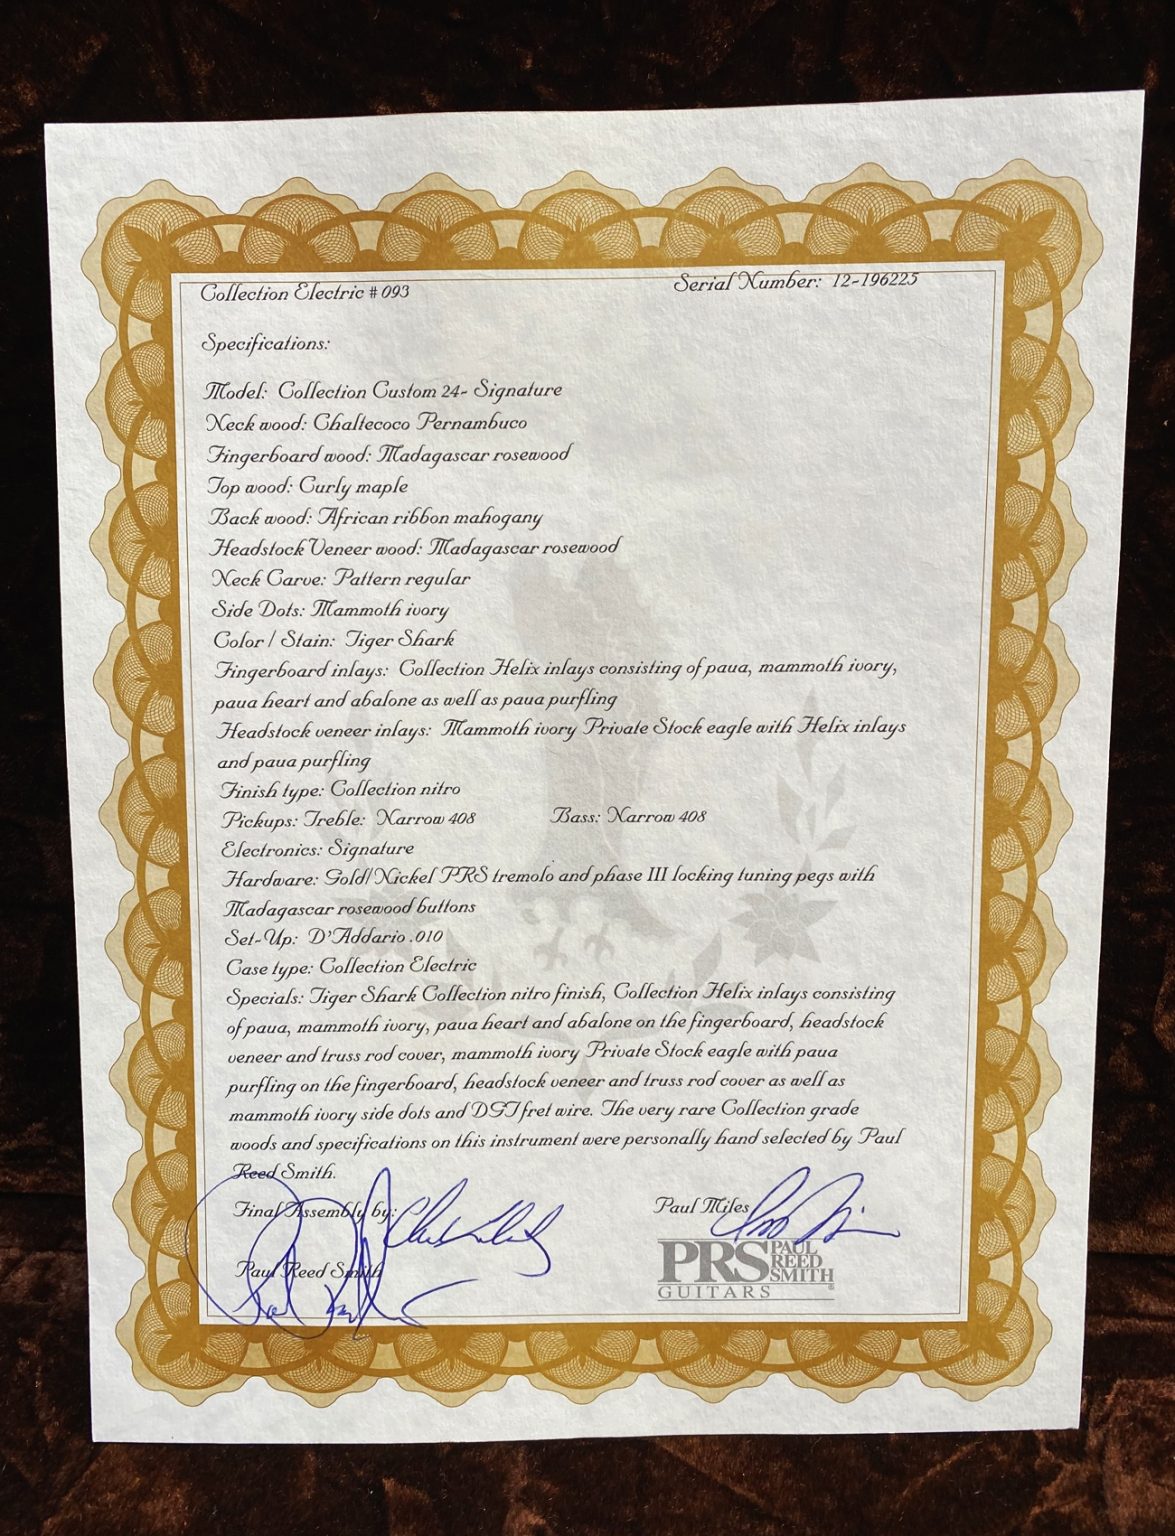 Collection Electric # 093
Serial Number: 12-196225
Specifications:
Model: Collection Custom 24- Signature
Neck wood: Chaltecoco Pernambuco
Fingerboard wood: Madagascar rosewood
Top wood: Curly maple
Back wood: African ribbon mahogany
Headstock Veneer wood: Madagascar rosewood
Neck Carve: Pattern regular
Side Dots: Mammoth ivory
Color / Stain: Tiger Shark
Fingerboard inlays: Collection Helix inlays consisting of paua, mammoth ivory,
paua heart and abalone as well as paua purfling
Headstock veneer inlays: Mammoth ivory Private Stock eagle with Helix inlays
and paua purfling
Finish type: Collection nitro
Pickups: Treble: Narrow 408 Bass: Narrow 408
Electronics: Signature
Hardware: Gold/Nickel PRS tremolo and phase III locking tuning pegs with
Madagascar rosewood buttons
Set-Up: D'Addario .010
Case type: Collection Electric
Specials: Tiger Shark Collection nitro finish, Collection Helix inlays consisting
of paua, mammoth ivory, paua heart and abalone on the fingerboard, headstock
veneer and truss rod cover, mammoth ivory Private Stock eagle with paua
purfling on the fingerboard, headstock veneer and truss rod cover as well as
mammoth ivory side dots and DGT fret wire. The very rare Collection grade
woods and specifications on this instrument were personally hand selected by Paul
Reed Smith.
Final Assembly by:
Paul Miles
Paul Reed Smith
PRS PAUL REED SMITH
GUITARS ®